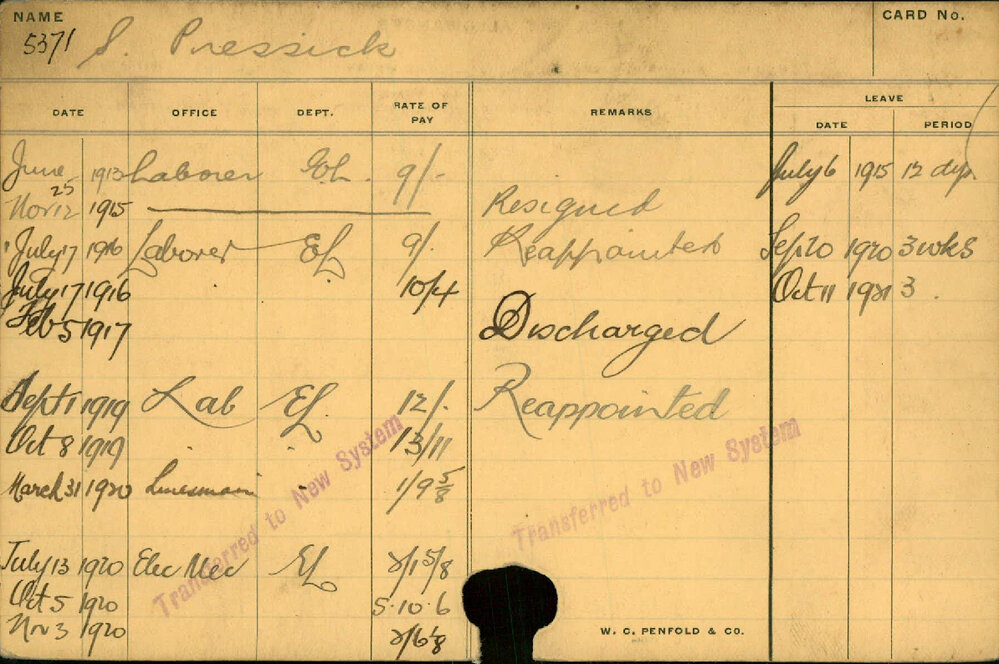 NAME
CARD No.
5371 S. Pressick
DATE OFFICE DEPT. RATE OF PAY REMARKS LEAVE
DATE PERIOD
June 1913 Laborer EL. 9/- July 6 1915 12 dys.
25
Nov 12 1915 Resigned
July 17 1916 Laborer EL 9/- Reappointed Sep 20 1920 3 wks
July 17 1916 10/4 Oct 11 1921 3
Feb 5 1917 Discharged
Sept 1 1919 Lab EL 12/- Reappointed
Oct 8 1919 13/11
March 31 1920 Linesman " 1/9 5/8
July 13 1920 Elec Mec EL 2/1 5/8
Oct 5 1920 5.10.6
Nov 3 1920
Transferred to New System
Transferred to New System
W. C. PENFOLD & CO.